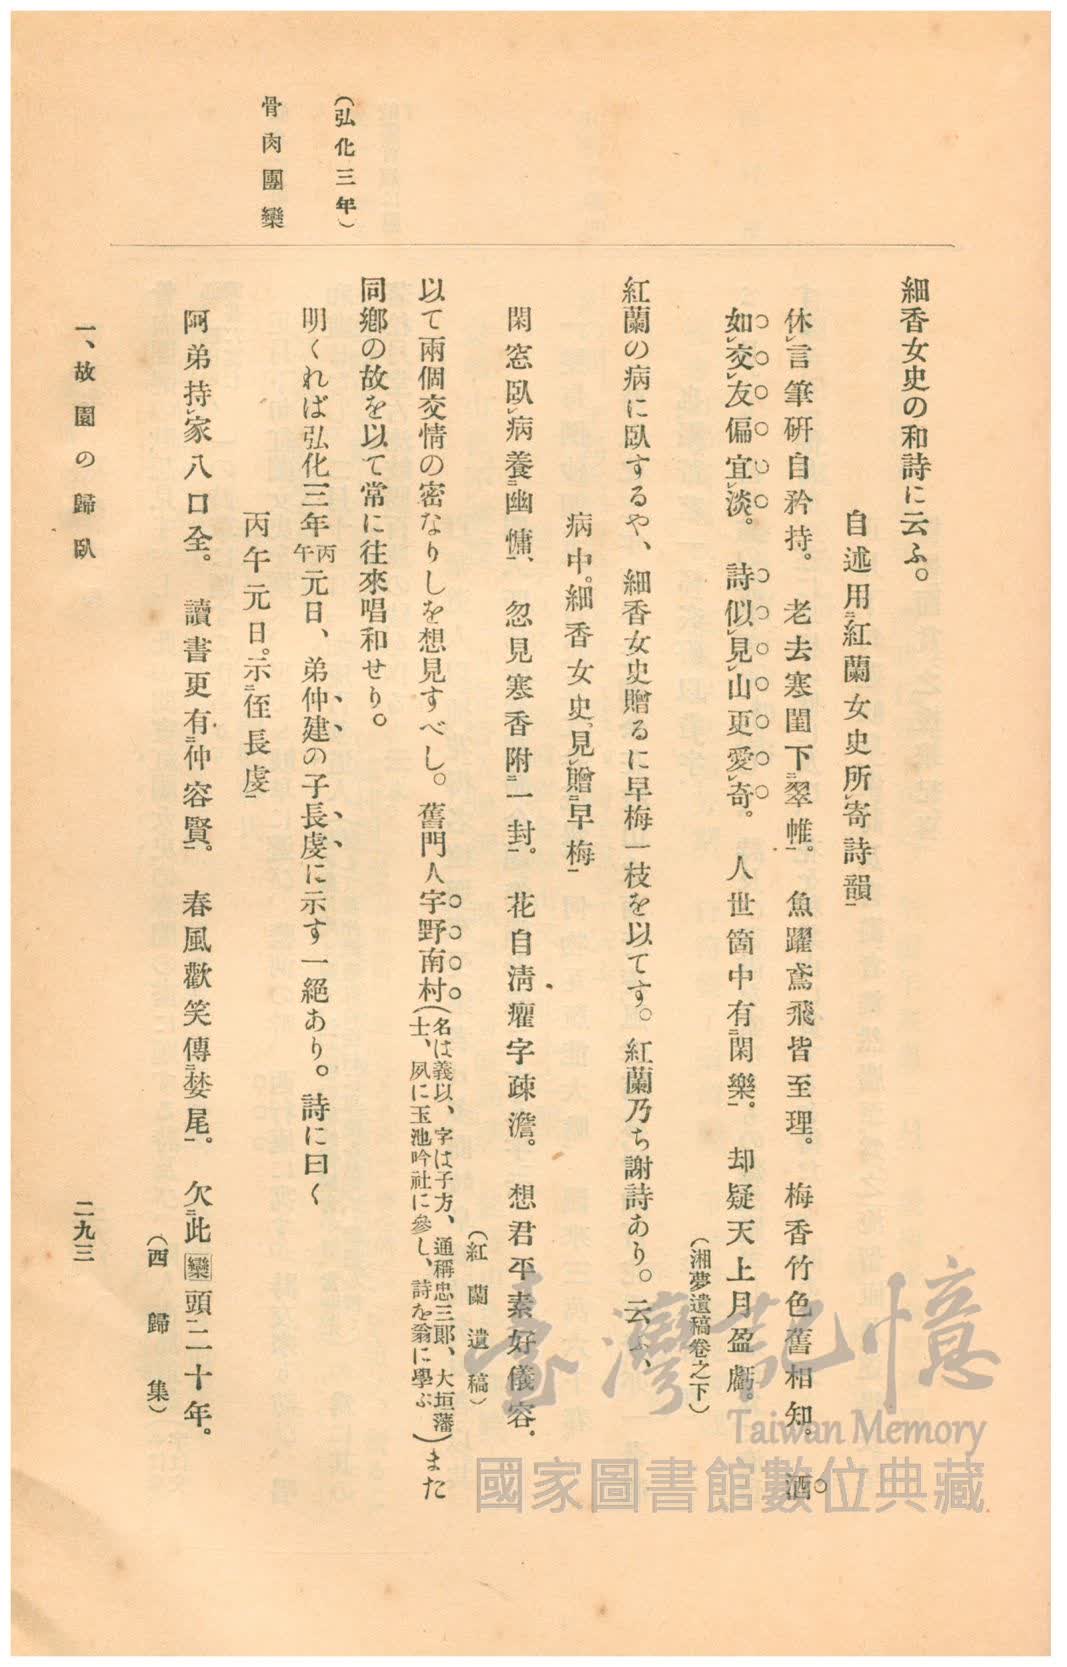 細香女史の和詩に云ふ。
自述用㆓紅蘭女史所㆑寄詩韻㆒
休㆑言筆硏自矜持。老去寒閨下㆓翠帷㆒。魚躍鳶飛皆至理。梅香竹色舊相知。酒
如㆑交㆑友偏宜㆑淡。詩似㆑見㆑山更愛㆑奇。人世箇中有㆓閑樂㆒。却疑天上月盈虧。
(湘夢遺稿卷之下)
紅蘭の病に臥するや、細香女史贈るに早梅一枝を以てす。紅蘭乃ち謝詩あり。云ふ、
病中。細香女史。見㆑贈㆓早梅㆒
閑窓臥㆑病養㆓幽慵㆒、忽見寒香附㆓一封㆒。花自淸癯字疎澹。想君平素好儀容。
(紅蘭遺稿)
以て兩個交情の密なりしを想見すべし。舊門人宇野南村(名は義以、字は子方、通稱忠三郎、大垣藩士、夙に玉池吟社に參し、詩を翁に學ぶ)また
同鄕の故を以て常に往來唱和せり。
明くれば弘化三年丙午元日、弟仲建の子長虔に示す一絕あり。詩に曰く
丙午元日。示㆓侄長虔㆒
阿弟持㆑家八口全。讀書更有㆓仲容賢㆒。春風歡笑傳㆓婪尾㆒。欠㆓此欒頭二十年。
(西歸集)
(弘化三年)
骨肉團欒
一、故園の歸臥
二九三
臺灣記憶
Taiwan Memory
國家圖書館數位典藏